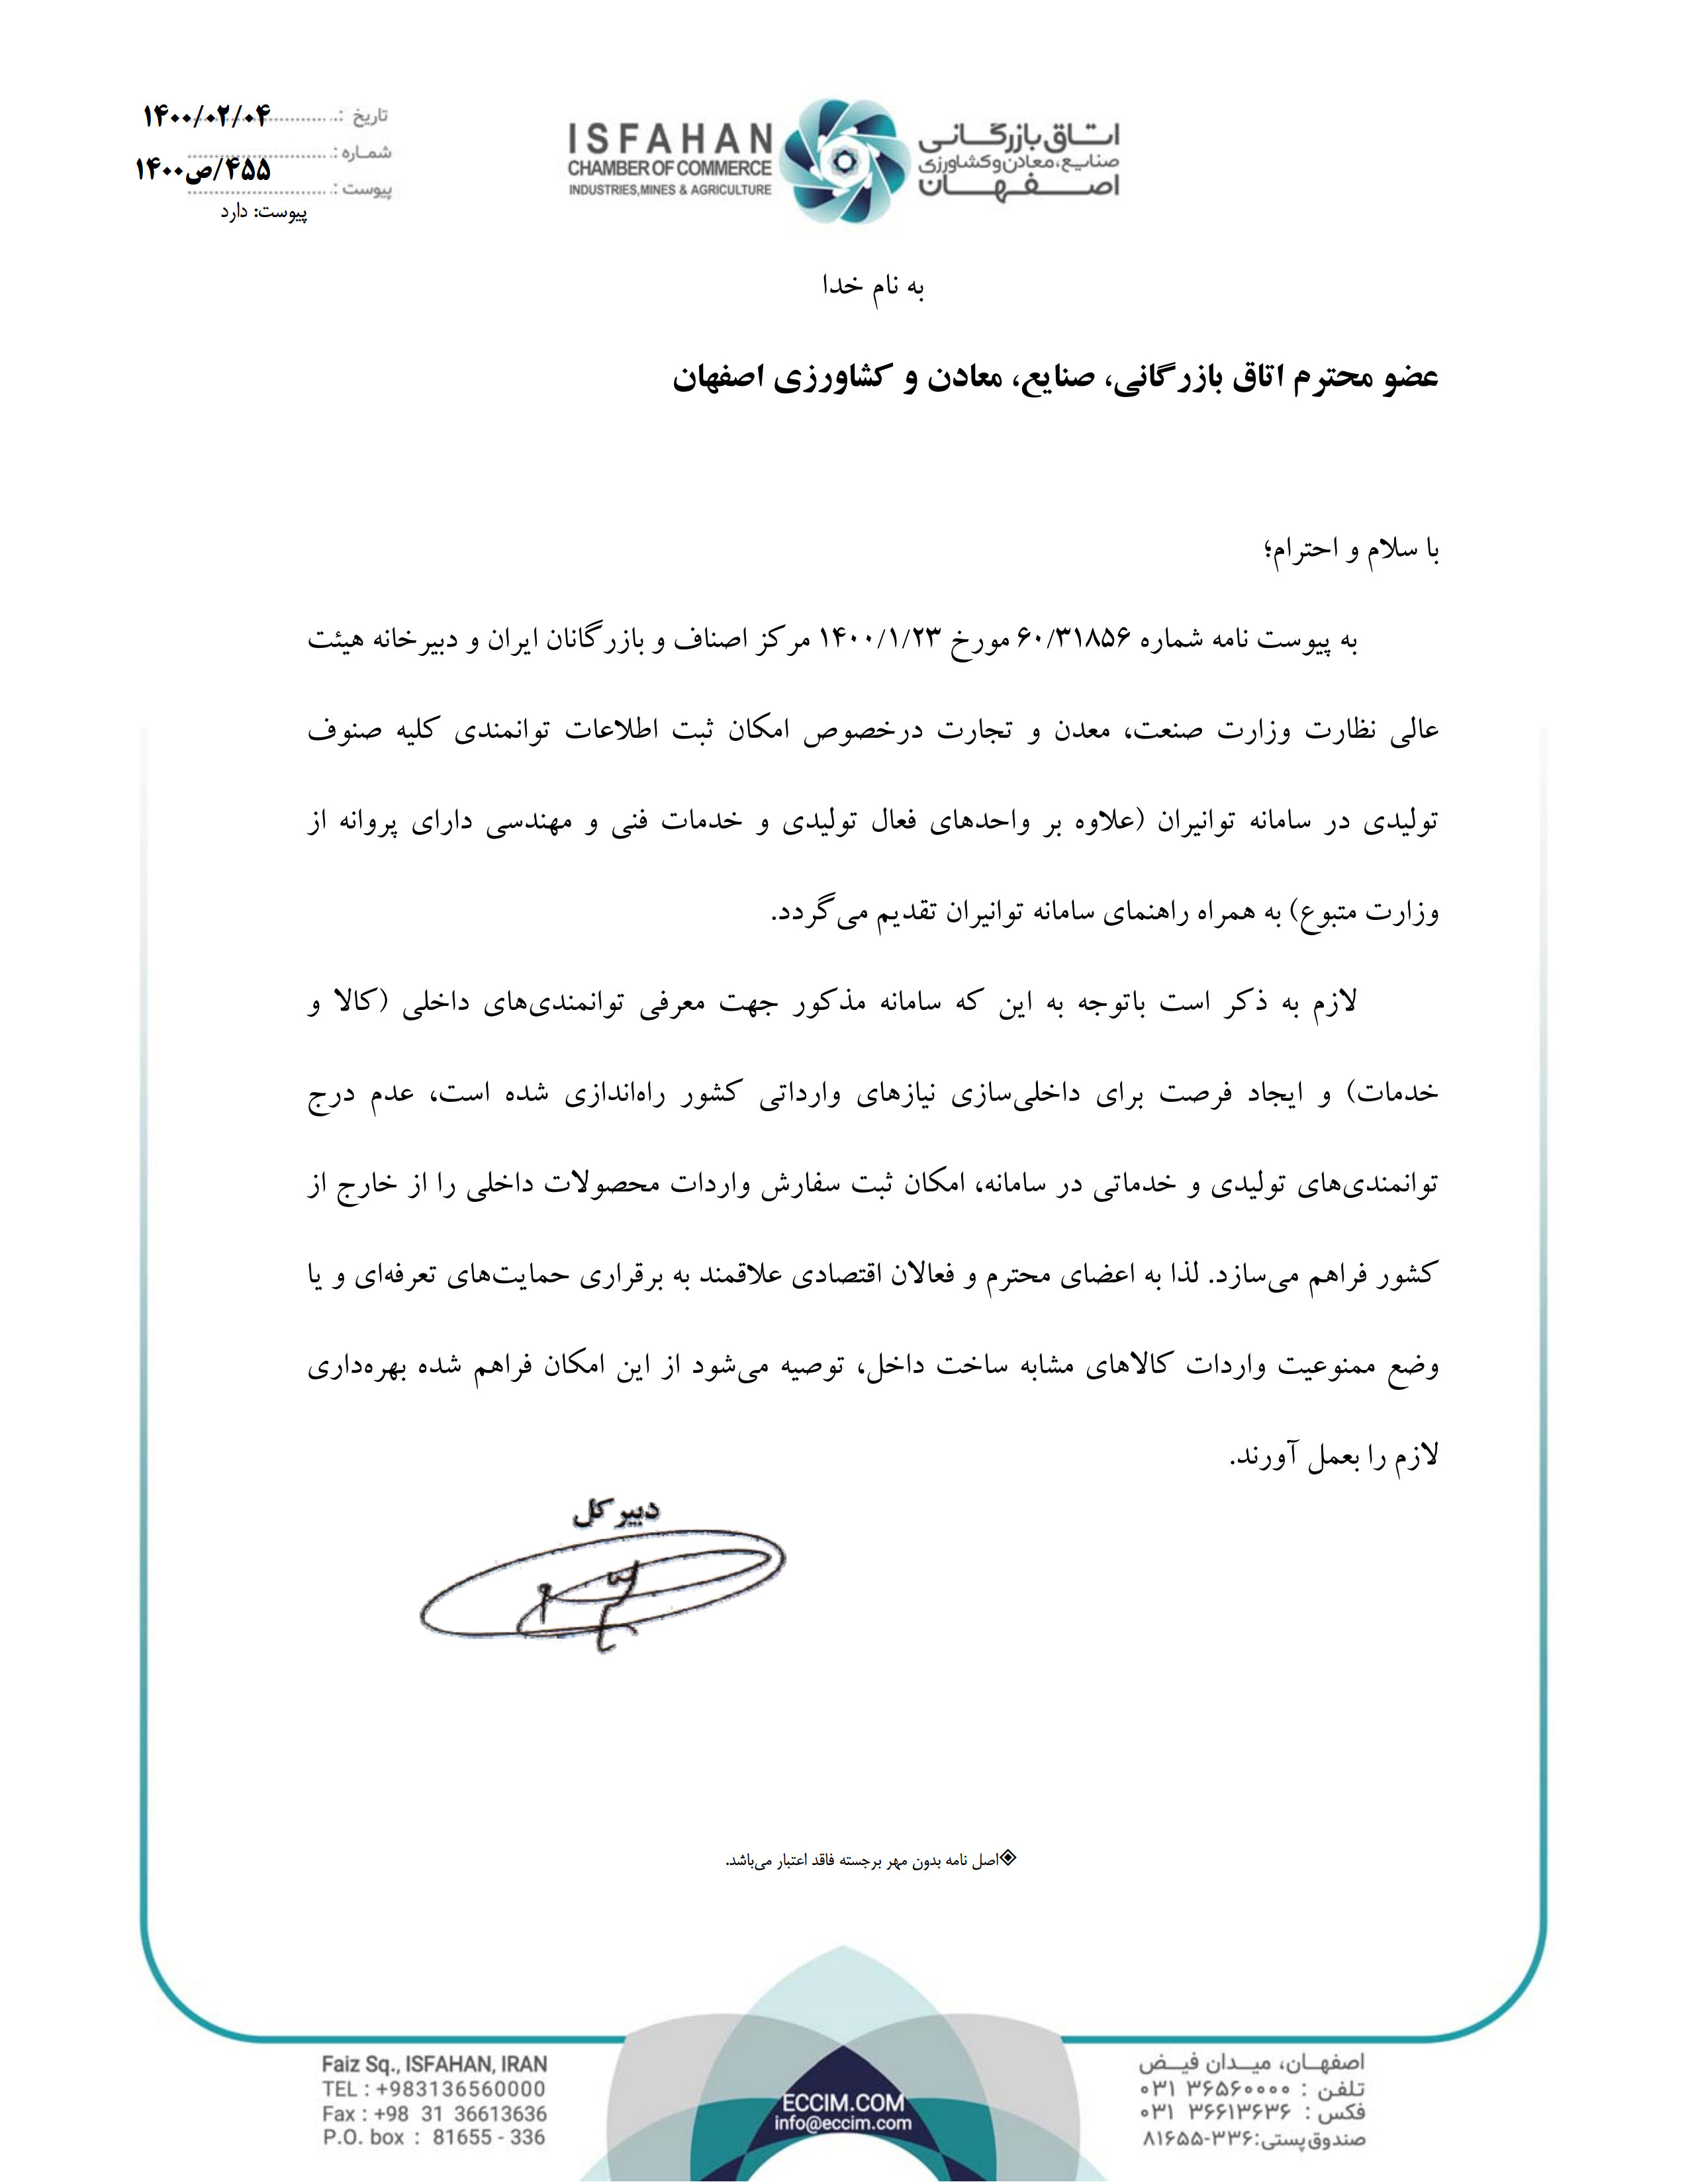 تاریخ :
۱۴۰۰/۰۲/۰۴
شماره :
۴۵۵/ص۱۴۰۰
پیوست :
پیوست: دارد
ISFAHAN
CHAMBER OF COMMERCE
INDUSTRIES,MINES & AGRICULTURE
اتاق بازرگانی
صنایع،معادن‌وکشاورزی
اصفهان
به نام خدا
عضو محترم اتاق بازرگانی، صنایع، معادن و کشاورزی اصفهان
با سلام و احترام؛
به پیوست نامه شماره ۶۰/۳۱۸۵۶ مورخ ۱۴۰۰/۱/۲۳ مرکز اصناف و بازرگانان ایران و دبیرخانه هیئت
عالی نظارت وزارت صنعت، معدن و تجارت درخصوص امکان ثبت اطلاعات توانمندی کلیه صنوف
تولیدی در سامانه توانیران (علاوه بر واحدهای فعال تولیدی و خدمات فنی و مهندسی دارای پروانه از
وزارت متبوع) به همراه راهنمای سامانه توانیران تقدیم می‌گردد.
لازم به ذکر است باتوجه به این که سامانه مذکور جهت معرفی توانمندی‌های داخلی (کالا و
خدمات) و ایجاد فرصت برای داخلی‌سازی نیازهای وارداتی کشور راه‌اندازی شده است، عدم درج
توانمندی‌های تولیدی و خدماتی در سامانه، امکان ثبت سفارش واردات محصولات داخلی را از خارج از
کشور فراهم می‌سازد. لذا به اعضای محترم و فعالان اقتصادی علاقمند به برقراری حمایت‌های تعرفه‌ای و یا
وضع ممنوعیت واردات کالاهای مشابه ساخت داخل، توصیه می‌شود از این امکان فراهم شده بهره‌داری
لازم را بعمل آورند.
دبیر کل
اصل نامه بدون مهر برجسته فاقد اعتبار می‌باشد.
Faiz Sq., ISFAHAN, IRAN
TEL : +983136560000
Fax : +98 31 36613636
P.O. box : 81655 - 336
ECCIM.COM
info@eccim.com
اصفهــان، میــدان فیــض
تلفن : ۰۳۱ ۳۶۵۶۰۰۰۰
فکس : ۰۳۱ ۳۶۶۱۳۶۳۶
صندوق پستی:۸۱۶۵۵-۳۳۶